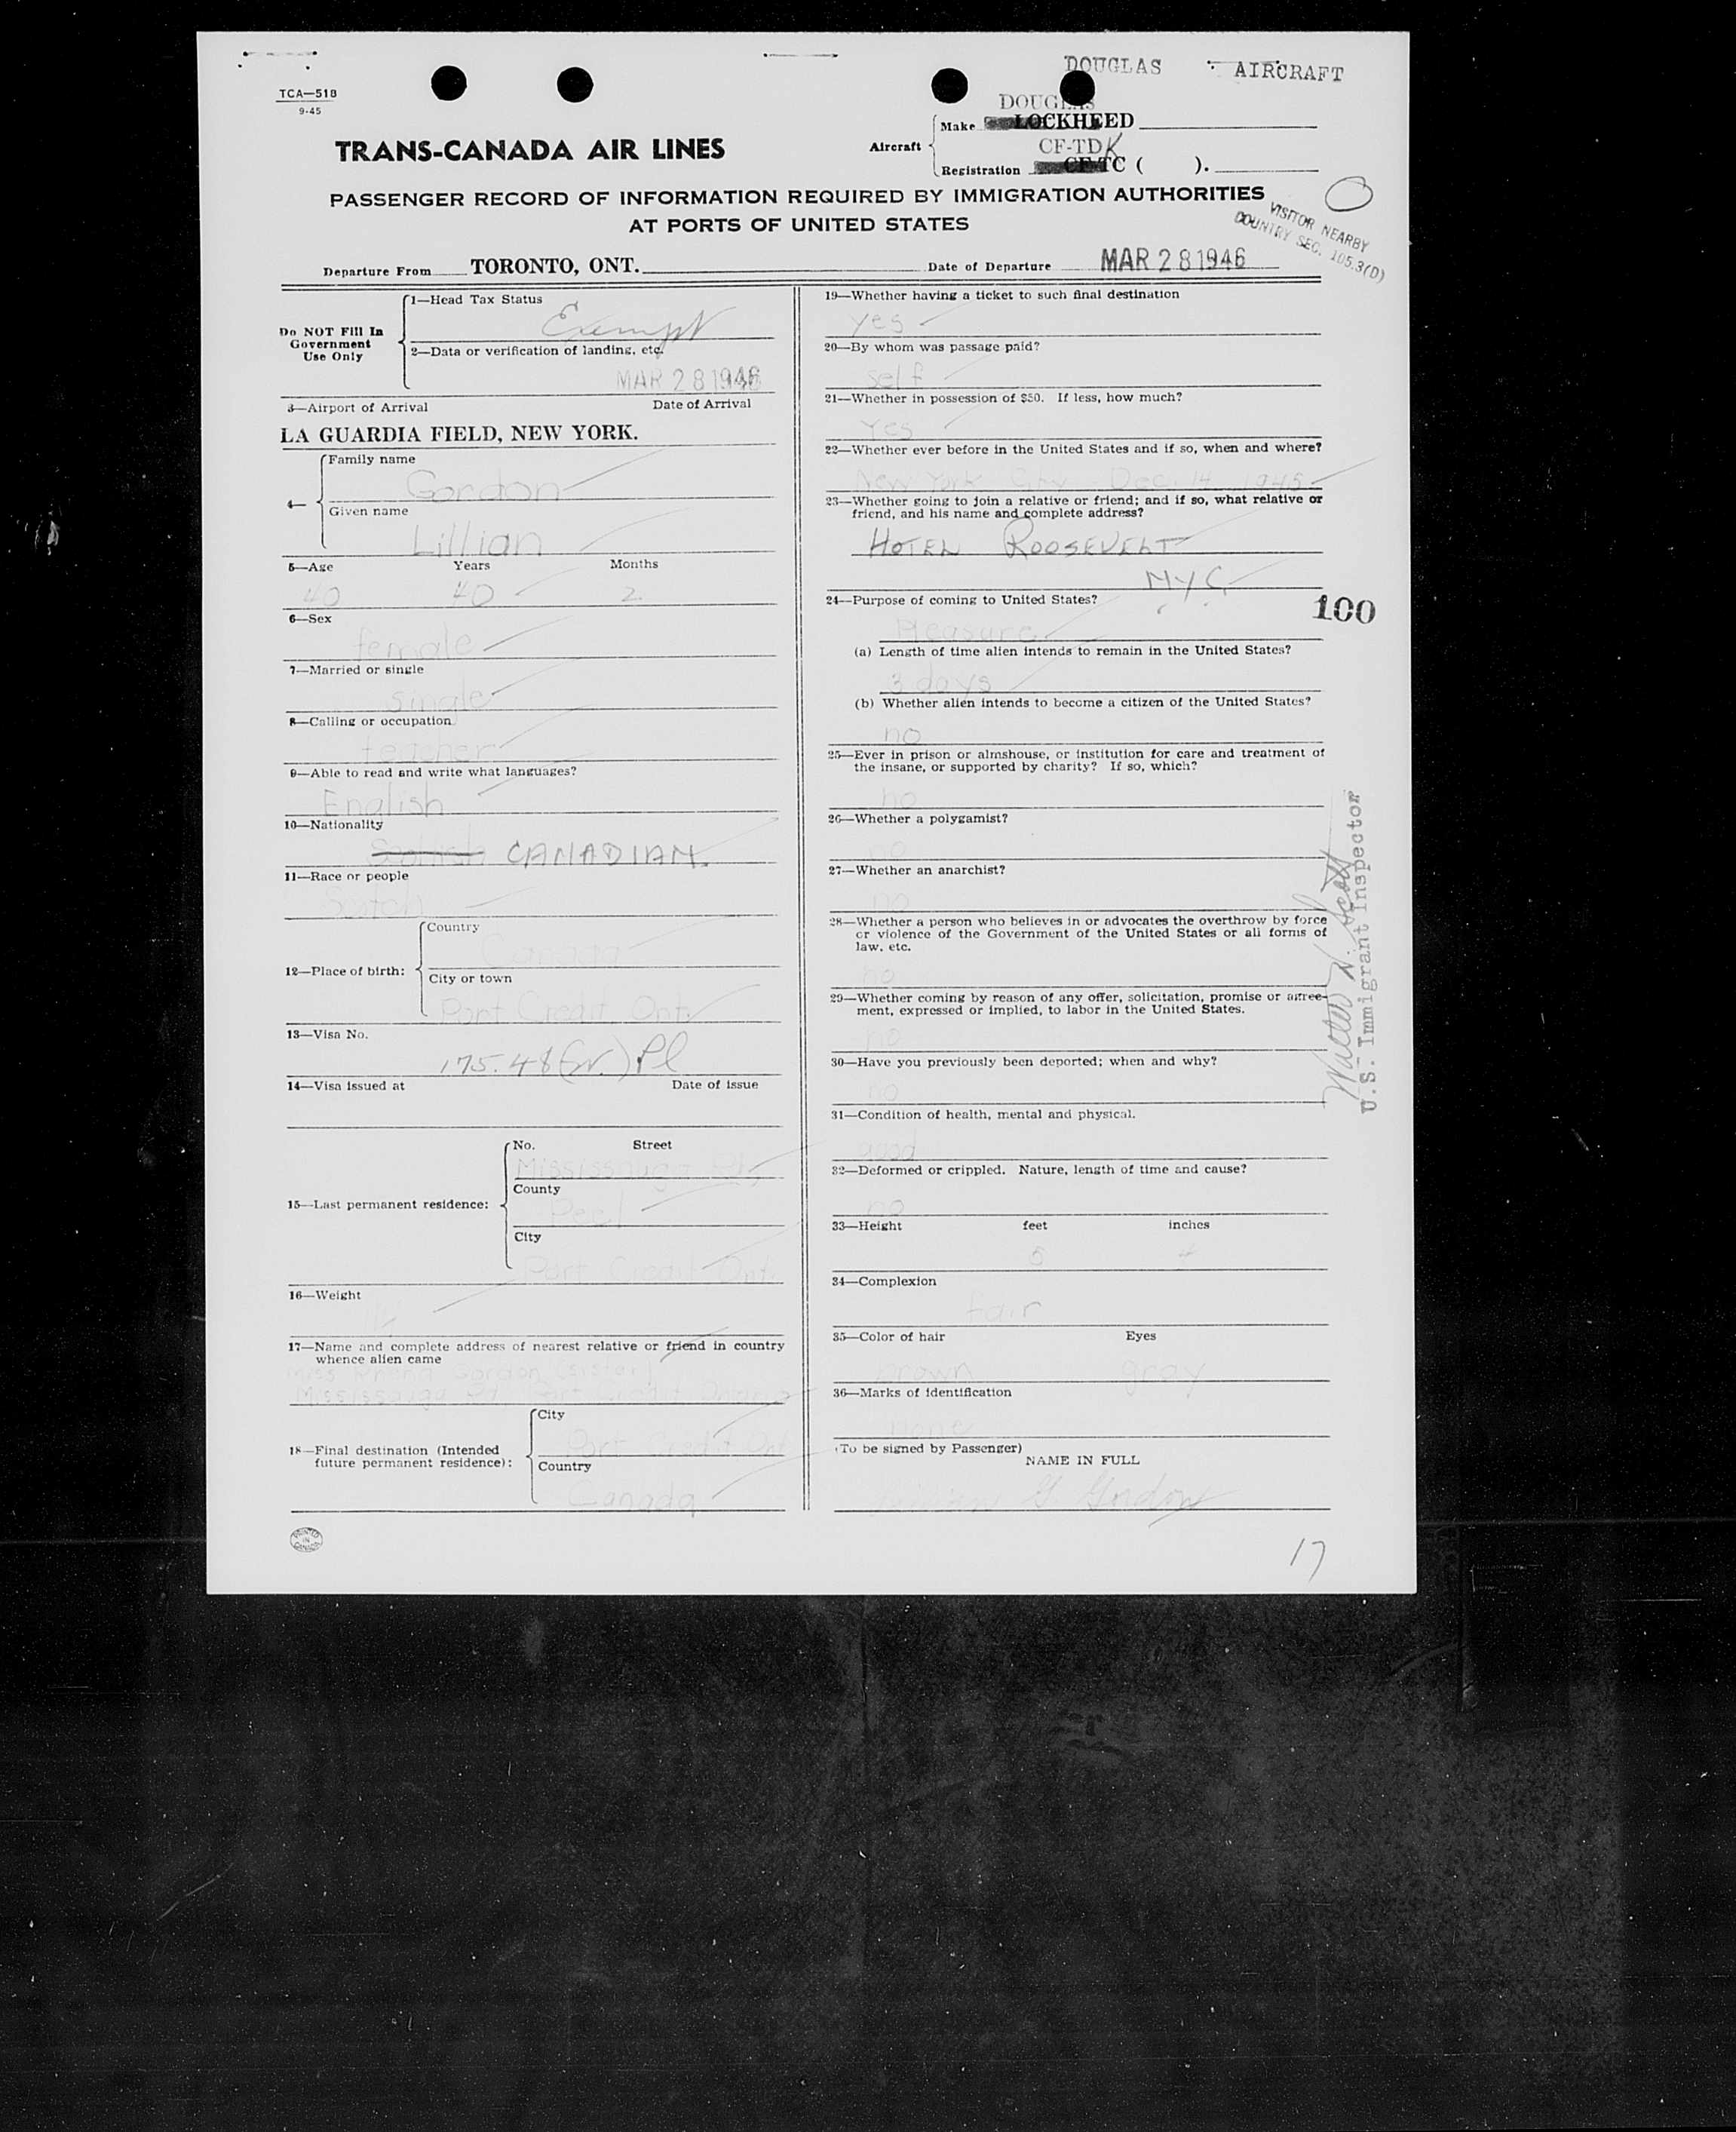 DOUGLAS AIRCRAFT
TCA—518
9-45
DOUGLAS
Make LOCKHEED
TRANS-CANADA AIR LINES
Aircraft
CF-TDK
Registration CF-TC ( ).
PASSENGER RECORD OF INFORMATION REQUIRED BY IMMIGRATION AUTHORITIES
AT PORTS OF UNITED STATES
VISITOR NEARBY
COUNTRY SEC. 105.3(D)
Departure From TORONTO, ONT. Date of Departure MAR 28 1946
Do NOT Fill In
Government
Use Only
1—Head Tax Status
Exempt
2—Data or verification of landing, etc.
MAR 28 1946
3—Airport of Arrival Date of Arrival
LA GUARDIA FIELD, NEW YORK.
4—
Family name
Gordon
Given name
Lillian
5—Age Years Months
40 40 2
6—Sex
female
7—Married or single
single
8—Calling or occupation
teacher
9—Able to read and write what languages?
English
10—Nationality
Scottish CANADIAN.
11—Race or people
Scotch
12—Place of birth:
Country
Canada
City or town
Port Credit, Ont.
13—Visa No.
175.48 Pl
14—Visa issued at Date of issue
15—Last permanent residence:
No. Street
Mississauga Rd,
County
Peel
City
Port Credit Ont.
16—Weight
17—Name and complete address of nearest relative or friend in country
whence alien came
Miss Gordon (sister)
Mississauga Rd Port Credit Ontario
18—Final destination (Intended
future permanent residence):
City
Port Credit Ont
Country
Canada
PRINTED
IN
CANADA
19—Whether having a ticket to such final destination
yes
20—By whom was passage paid?
self
21—Whether in possession of $50. If less, how much?
Yes
22—Whether ever before in the United States and if so, when and where?
New York City Dec. 14 1945
23—Whether going to join a relative or friend; and if so, what relative or
friend, and his name and complete address?
HOTEL ROOSEVELT
NYC
24—Purpose of coming to United States?
100
Pleasure
(a) Length of time alien intends to remain in the United States?
3 days
(b) Whether alien intends to become a citizen of the United States?
no
25—Ever in prison or almshouse, or institution for care and treatment of
the insane, or supported by charity? If so, which?
no
26—Whether a polygamist?
no
27—Whether an anarchist?
no
28—Whether a person who believes in or advocates the overthrow by force
or violence of the Government of the United States or all forms of
law, etc.
no
29—Whether coming by reason of any offer, solicitation, promise or agree-
ment, expressed or implied, to labor in the United States.
no
30—Have you previously been deported; when and why?
no
31—Condition of health, mental and physical.
good
32—Deformed or crippled. Nature, length of time and cause?
no
33—Height feet inches
5 4
34—Complexion
fair
35—Color of hair Eyes
brown grey
36—Marks of identification
none
(To be signed by Passenger)
NAME IN FULL
Lillian G Gordon
Walter N. Scott
U.S. Immigrant Inspector
17